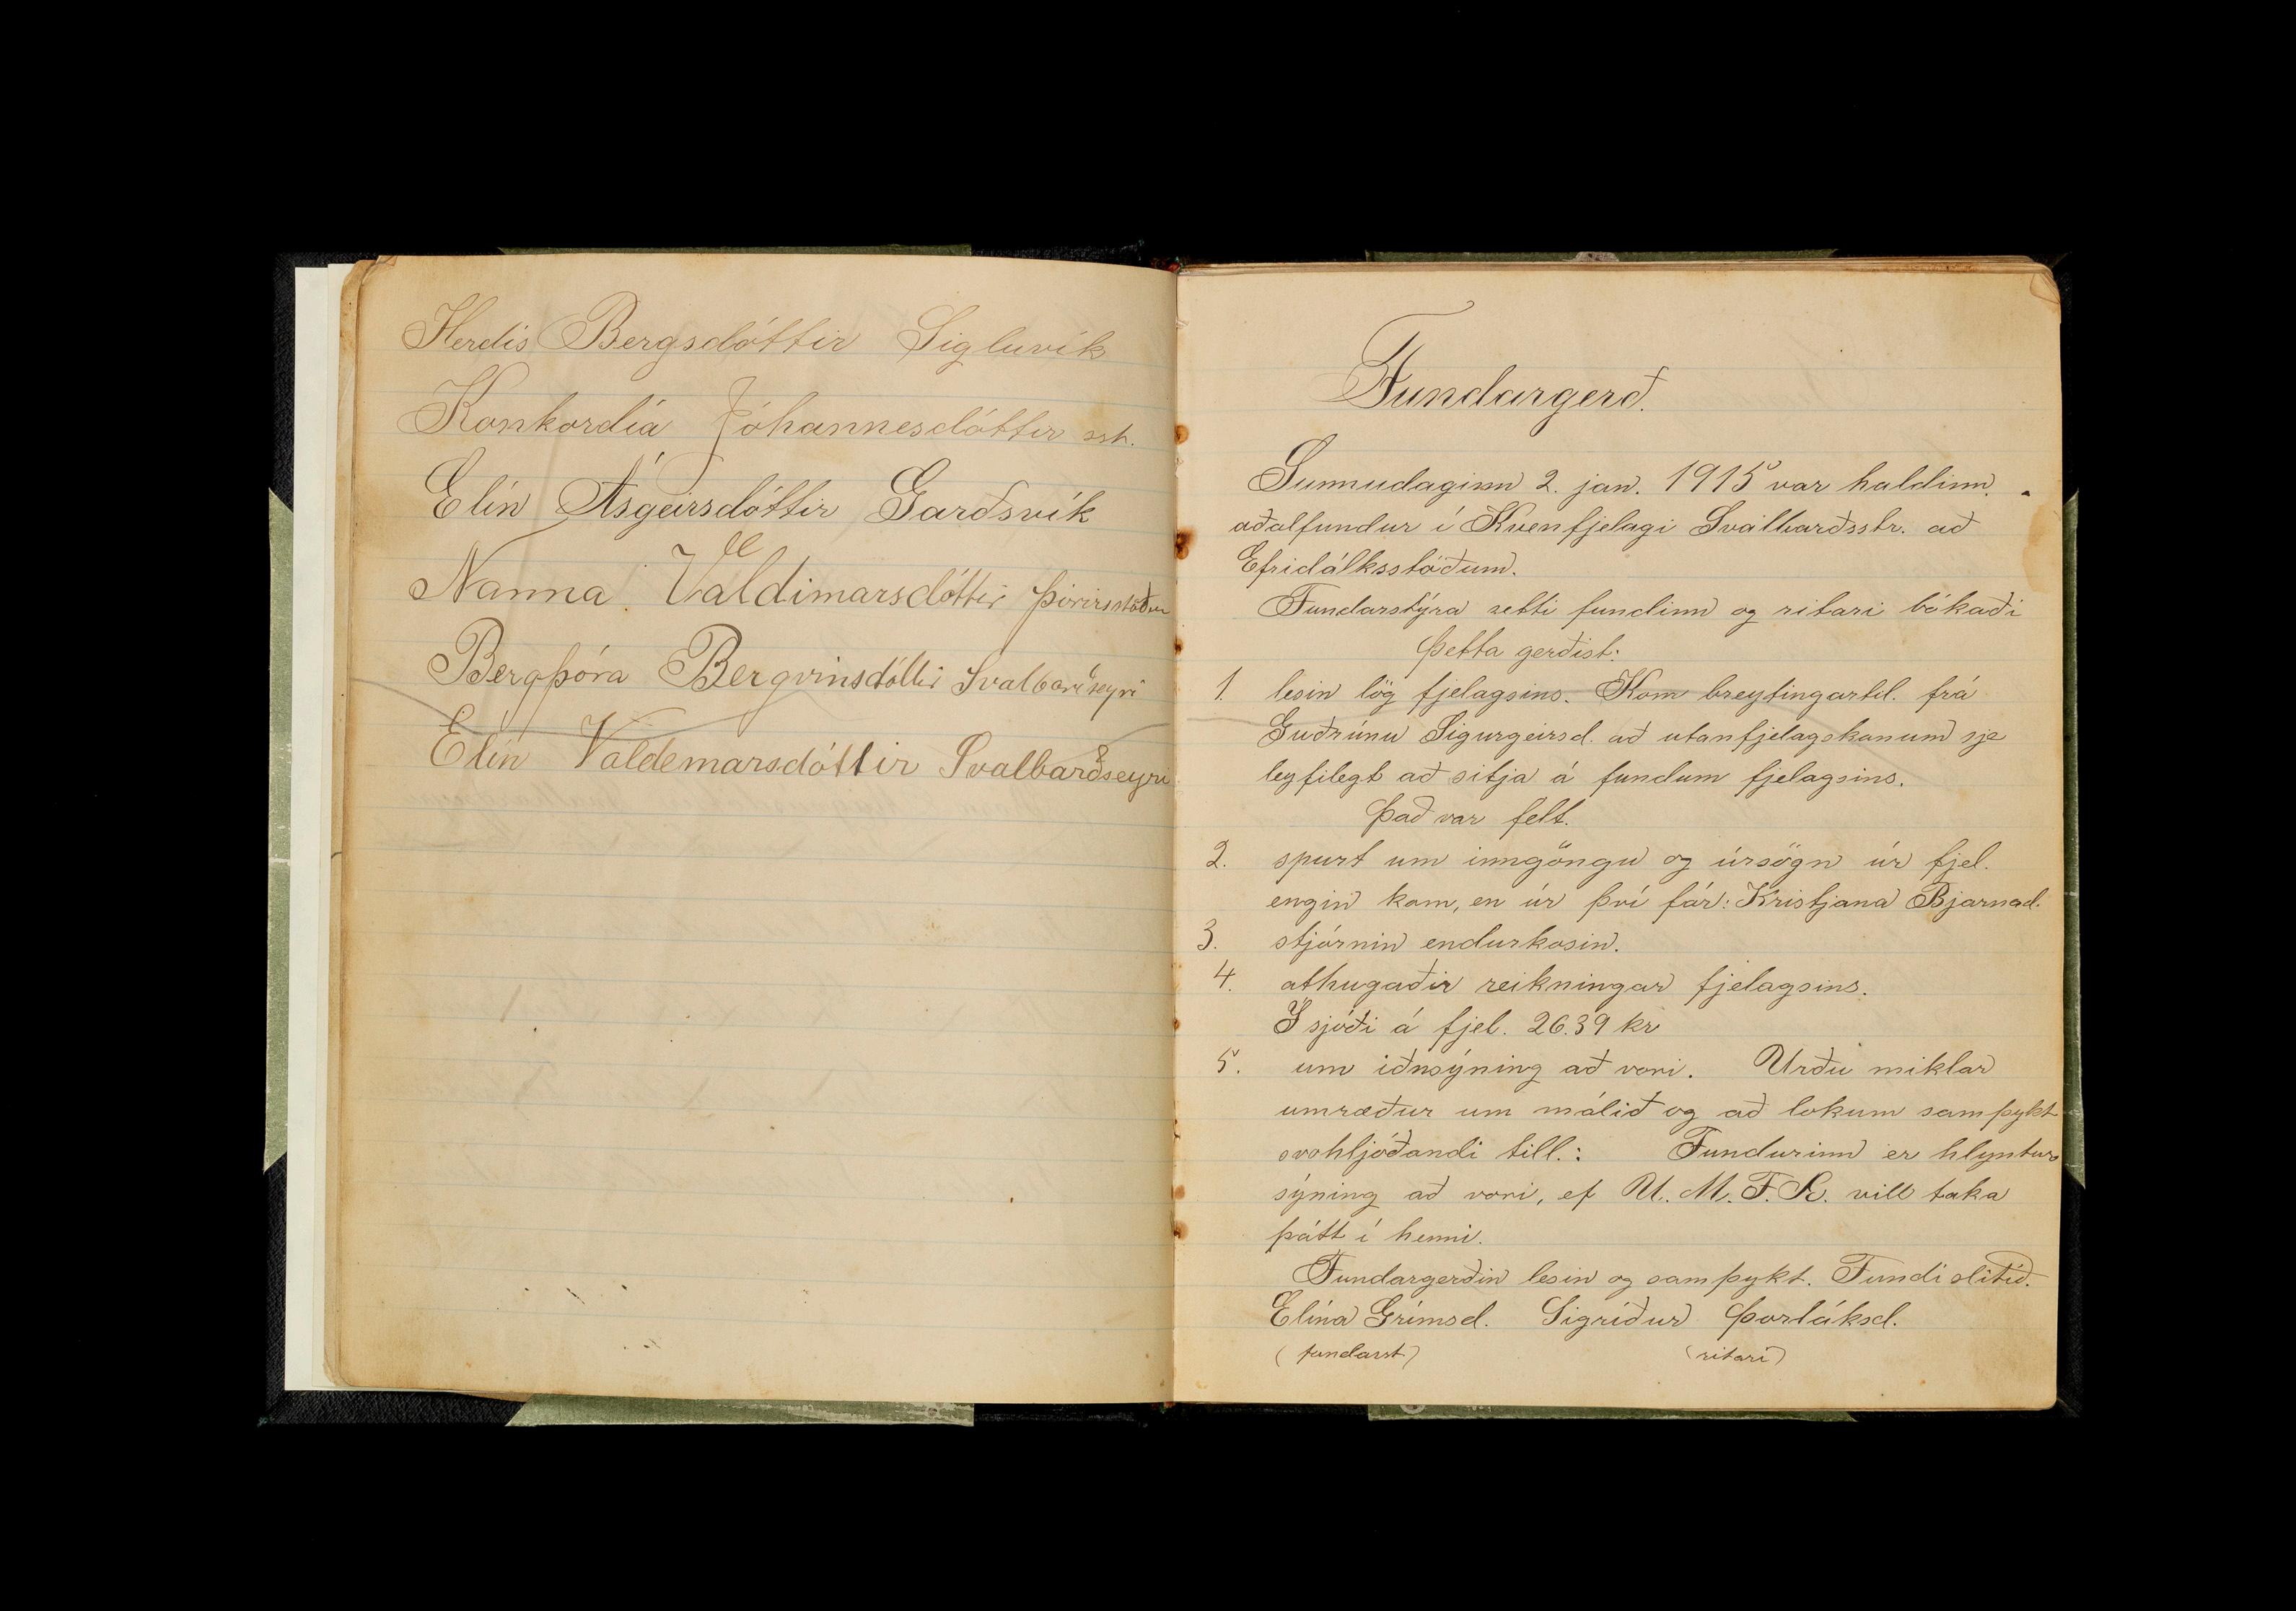 Herdís Bergsdóttir Sigluvík
Konkordía Jóhannesdóttir sst.
Elín Ásgeirsdóttir Garðsvík
Nanna Valdimarsdóttir Þórirsstöðum
Bergþóra Bergvinsdóttir Svalbarðseyri
Elín Valdemarsdóttir Svalbarðseyri
Fundargerð.
Sunnudaginn 2. jan. 1915 var haldinn
aðalfundur í Kvenfjelagi Svalbarðsstr. að
Efridálksstöðum.
Fundarstýra setti fundinn og ritari bókaði
Þetta gerðist:
1. lesin lög fjelagsins. Kom breytingartil. frá
Guðrúnu Sigurgeirsd. að utanfjelagskonum sje
leyfilegt að sitja á fundum fjelagsins.
Það var felt.
2. spurt um inngöngu og úrsögn úr fjel.
engin kom, en úr því fór: Kristjana Bjarnad.
3. stjórnin endurkosin.
4. athugaðir reikningar fjelagsins.
Í sjóði á fjel. 26.39 kr
5. um iðnsýning að vori. Urðu miklar
umræður um málið og að lokum samþykt
svohljóðandi till.: Fundurinn er hlyntur
sýning að vori, ef U. M. F. Æ. vill taka
þátt í henni.
Fundargerðin lesin og samþykt. Fundi slitið.
Elína Grímsd. Sigríður Þorláksd.
(fundarst) (ritari)